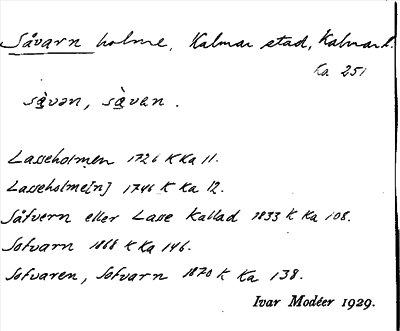 Såvarn holme, Kalmar stad, Kalmar l.
Ka 251
såvən, såvan.
Lasseholmen 1726 K Ka 11.
Lasseholme[n] 1746 K Ka 12.
Såfvern eller Lasse kallad 1833 K Ka 108.
Sofvarn 1868 K Ka 146.
Sofvaren, Sofvarn 1870 K Ka 138.
Ivar Modéer 1929.